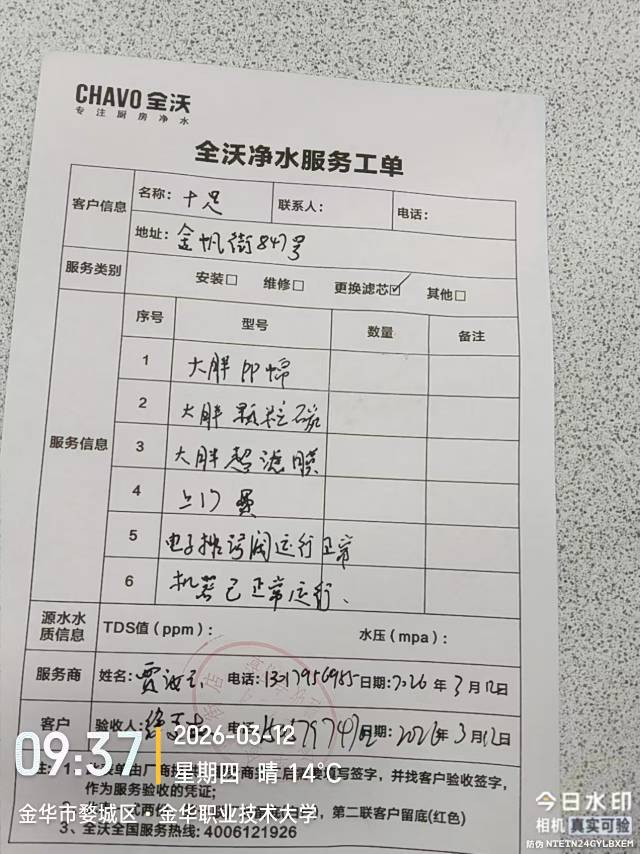 CHAVO 全沃
专注厨房净水
全沃净水服务工单
客户信息 名称：十足 联系人： 电话：
地址：金帆街847号
服务类别 安装□ 维修□ 更换滤芯☑ 其他□
服务信息 序号 型号 数量 备注
1 大胖PP棉
2 大胖颗粒碳
3 大胖超滤膜
4 上门费
5 电子排污阀运行正常
6 机器已正常运行、
源水水质信息 TDS值（ppm）： 水压（mpa）：
服务商 姓名：贾 电话： 日期：2026年3月12日
客户 验收人： 电话： 日期：2026年3月12日
09:37 2026-03-12
星期四·晴 14℃
注：1、 单由厂商 工 写签字，并找客户验收签字，
作为服务验收的凭证；
金华市婺城区·金华职业技术大学
第二联客户留底(红色)
3、全沃全国服务热线: 4006121926
今日水印
相机 真实可验
防伪 NTETN24GYLBXEM